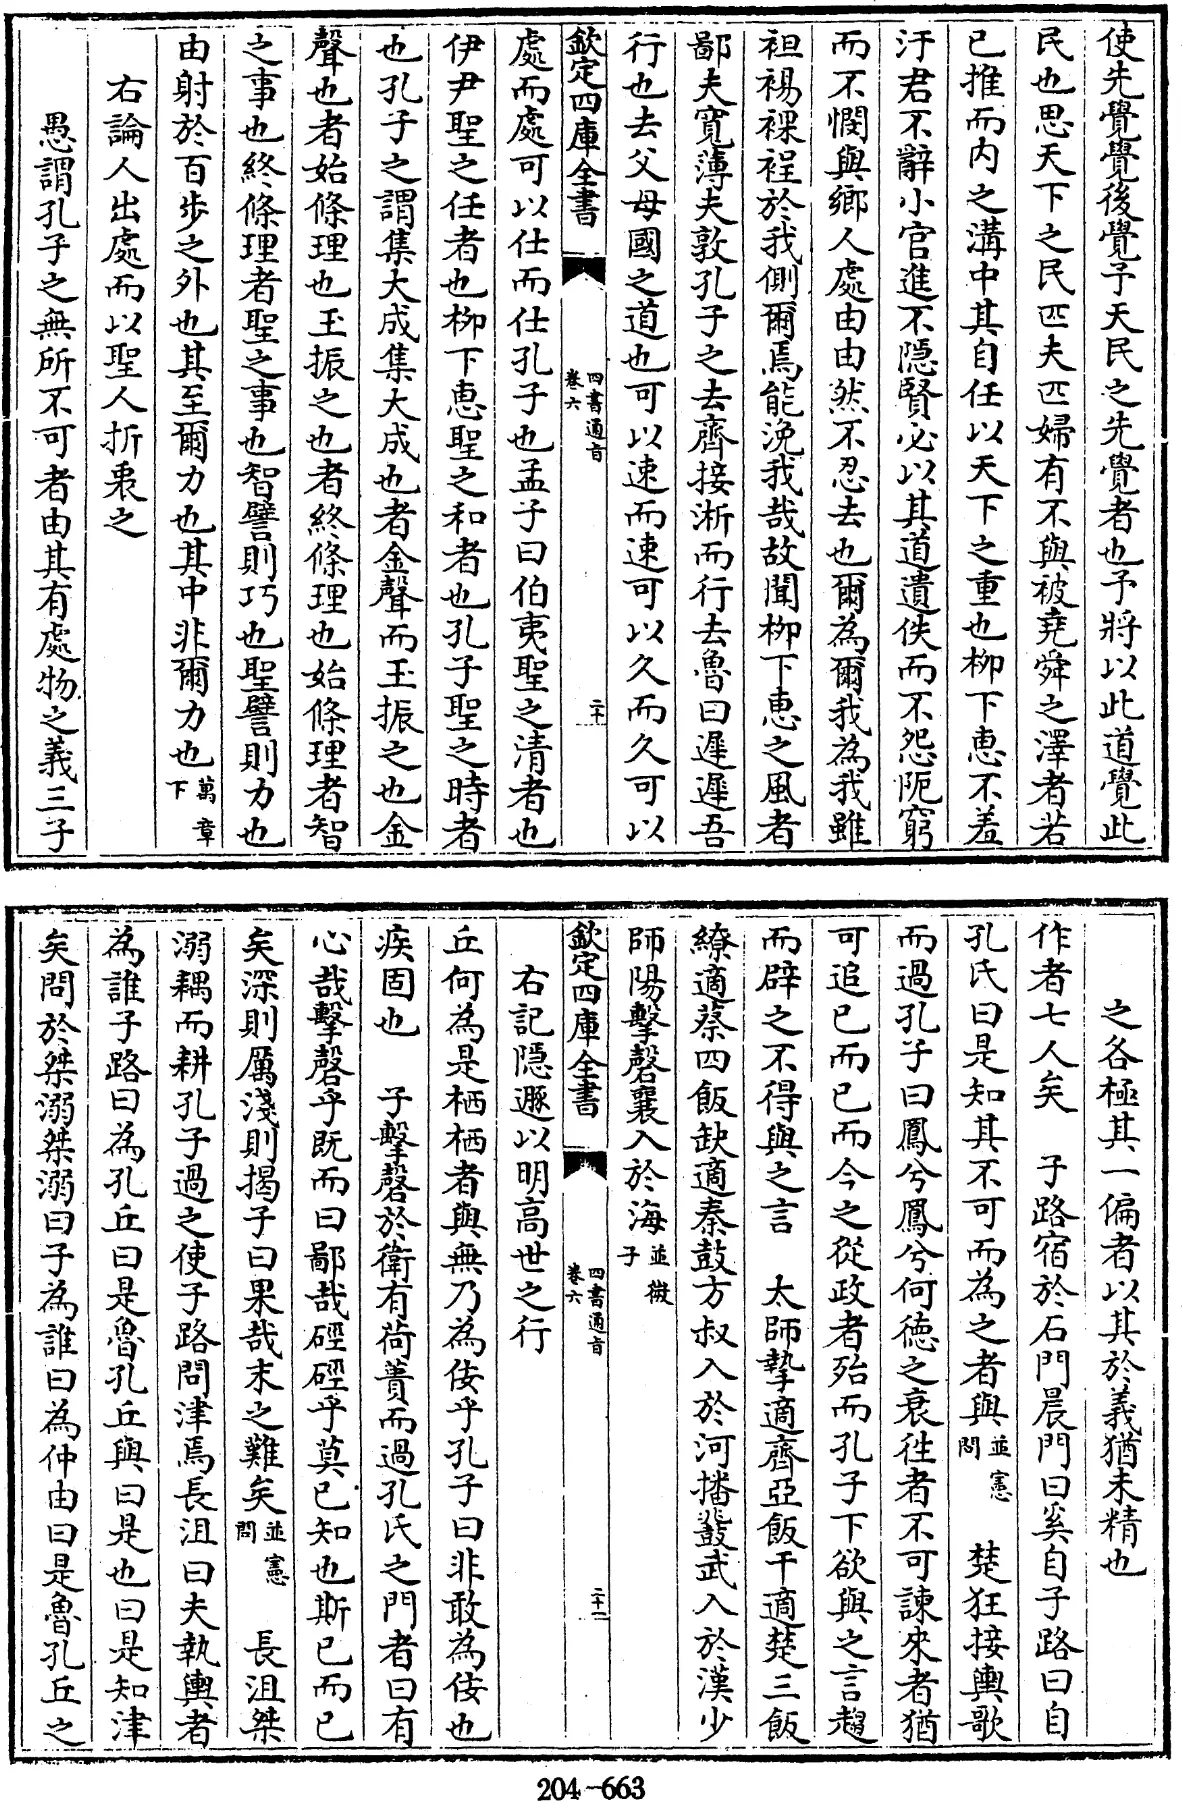 使先覺覺後覺予天民之先覺者也予將以此道覺此
民也思天下之民匹夫匹婦有不與被堯舜之澤者若
已推而内之溝中其自任以天下之重也柳下惠不羞
汙君不辭小官進不隠賢必以其道遺佚而不怨阨窮
而不憫與鄉人處由由然不忍去也爾為爾我為我雖
袒裼裸裎於我側爾焉能浼我哉故聞柳下惠之風者
鄙夫寛薄夫敦孔子之去齊接淅而行去魯曰遲遲吾
行也去父母國之道也可以速而速可以久而久可以
欽定四庫全書
四書通㫖
卷六
二十
處而處可以仕而仕孔子也孟子曰伯夷聖之清者也
伊尹聖之任者也柳下惠聖之和者也孔子聖之時者
也孔子之謂集大成集大成也者金聲而玉振之也金
聲也者始條理也玉振之也者終條理也始條理者智
之事也終條理者聖之事也智譬則巧也聖譬則力也
由射於百步之外也其至爾力也其中非爾力也萬章下
右論人出處而以聖人折衷之
愚謂孔子之無所不可者由其有處物之義三子
之各極其一偏者以其於義猶未精也
作者七人矣　子路宿於石門晨門曰奚自子路曰自
孔氏曰是知其不可而為之者與並憲問　楚狂接輿歌
而過孔子曰鳳兮鳳兮何徳之衰徃者不可諫來者猶
可追已而已而今之從政者殆而孔子下欲與之言趨
而辟之不得與之言　太師摯適齊亞飯干適楚三飯
繚適蔡四飯缺適秦鼓方叔入於河播鼗武入於漢少
師陽擊磬襄入於海並微子
欽定四庫全書
四書通㫖
卷六
二十一
右記隠遯以明高世之行
丘何為是栖栖者與無乃為佞乎孔子曰非敢為佞也
疾固也　子擊磬於衛有荷蕢而過孔氏之門者曰有
心哉擊磬乎既而曰鄙哉硜硜乎莫已知也斯已而已
矣深則厲淺則揭子曰果哉末之難矣並憲問　長沮桀
溺耦而耕孔子過之使子路問津焉長沮曰夫執輿者
為誰子路曰為孔丘曰是魯孔丘與曰是也曰是知津
矣問於桀溺桀溺曰子為誰曰為仲由曰是魯孔丘之
204-663